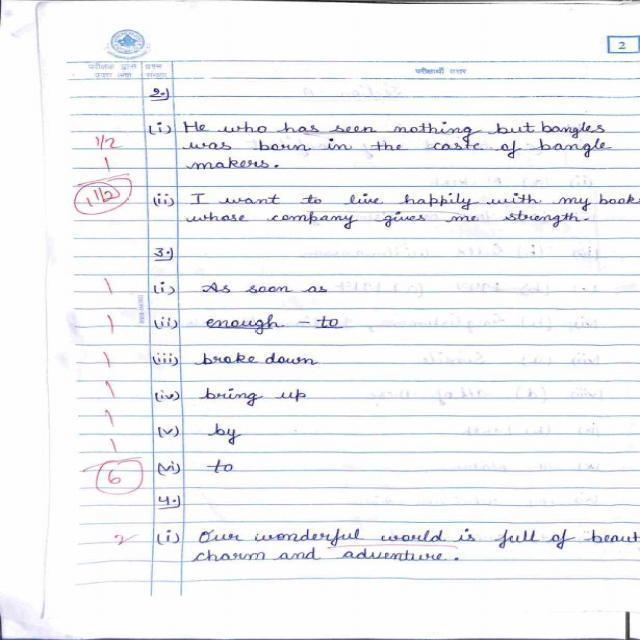 2
परीक्षक द्वारा प्रश्न परीक्षार्थी उत्तर
प्रदत्त अंक संख्या
2.)
1/2 (i) He who has seen nothing but bangles
was born in the caste of bangle
1 makers.
1 1/2 (ii) I want to live happily with my books
whose company gives me strength.
3.)
1 (i) As soon as
1 (ii) enough - to
1 (iii) broke down
1 (iv) bring up
1 (v) by
1 (vi) to
6
4.)
2 (i) Our wonderful world is full of beaut
charm and adventure.